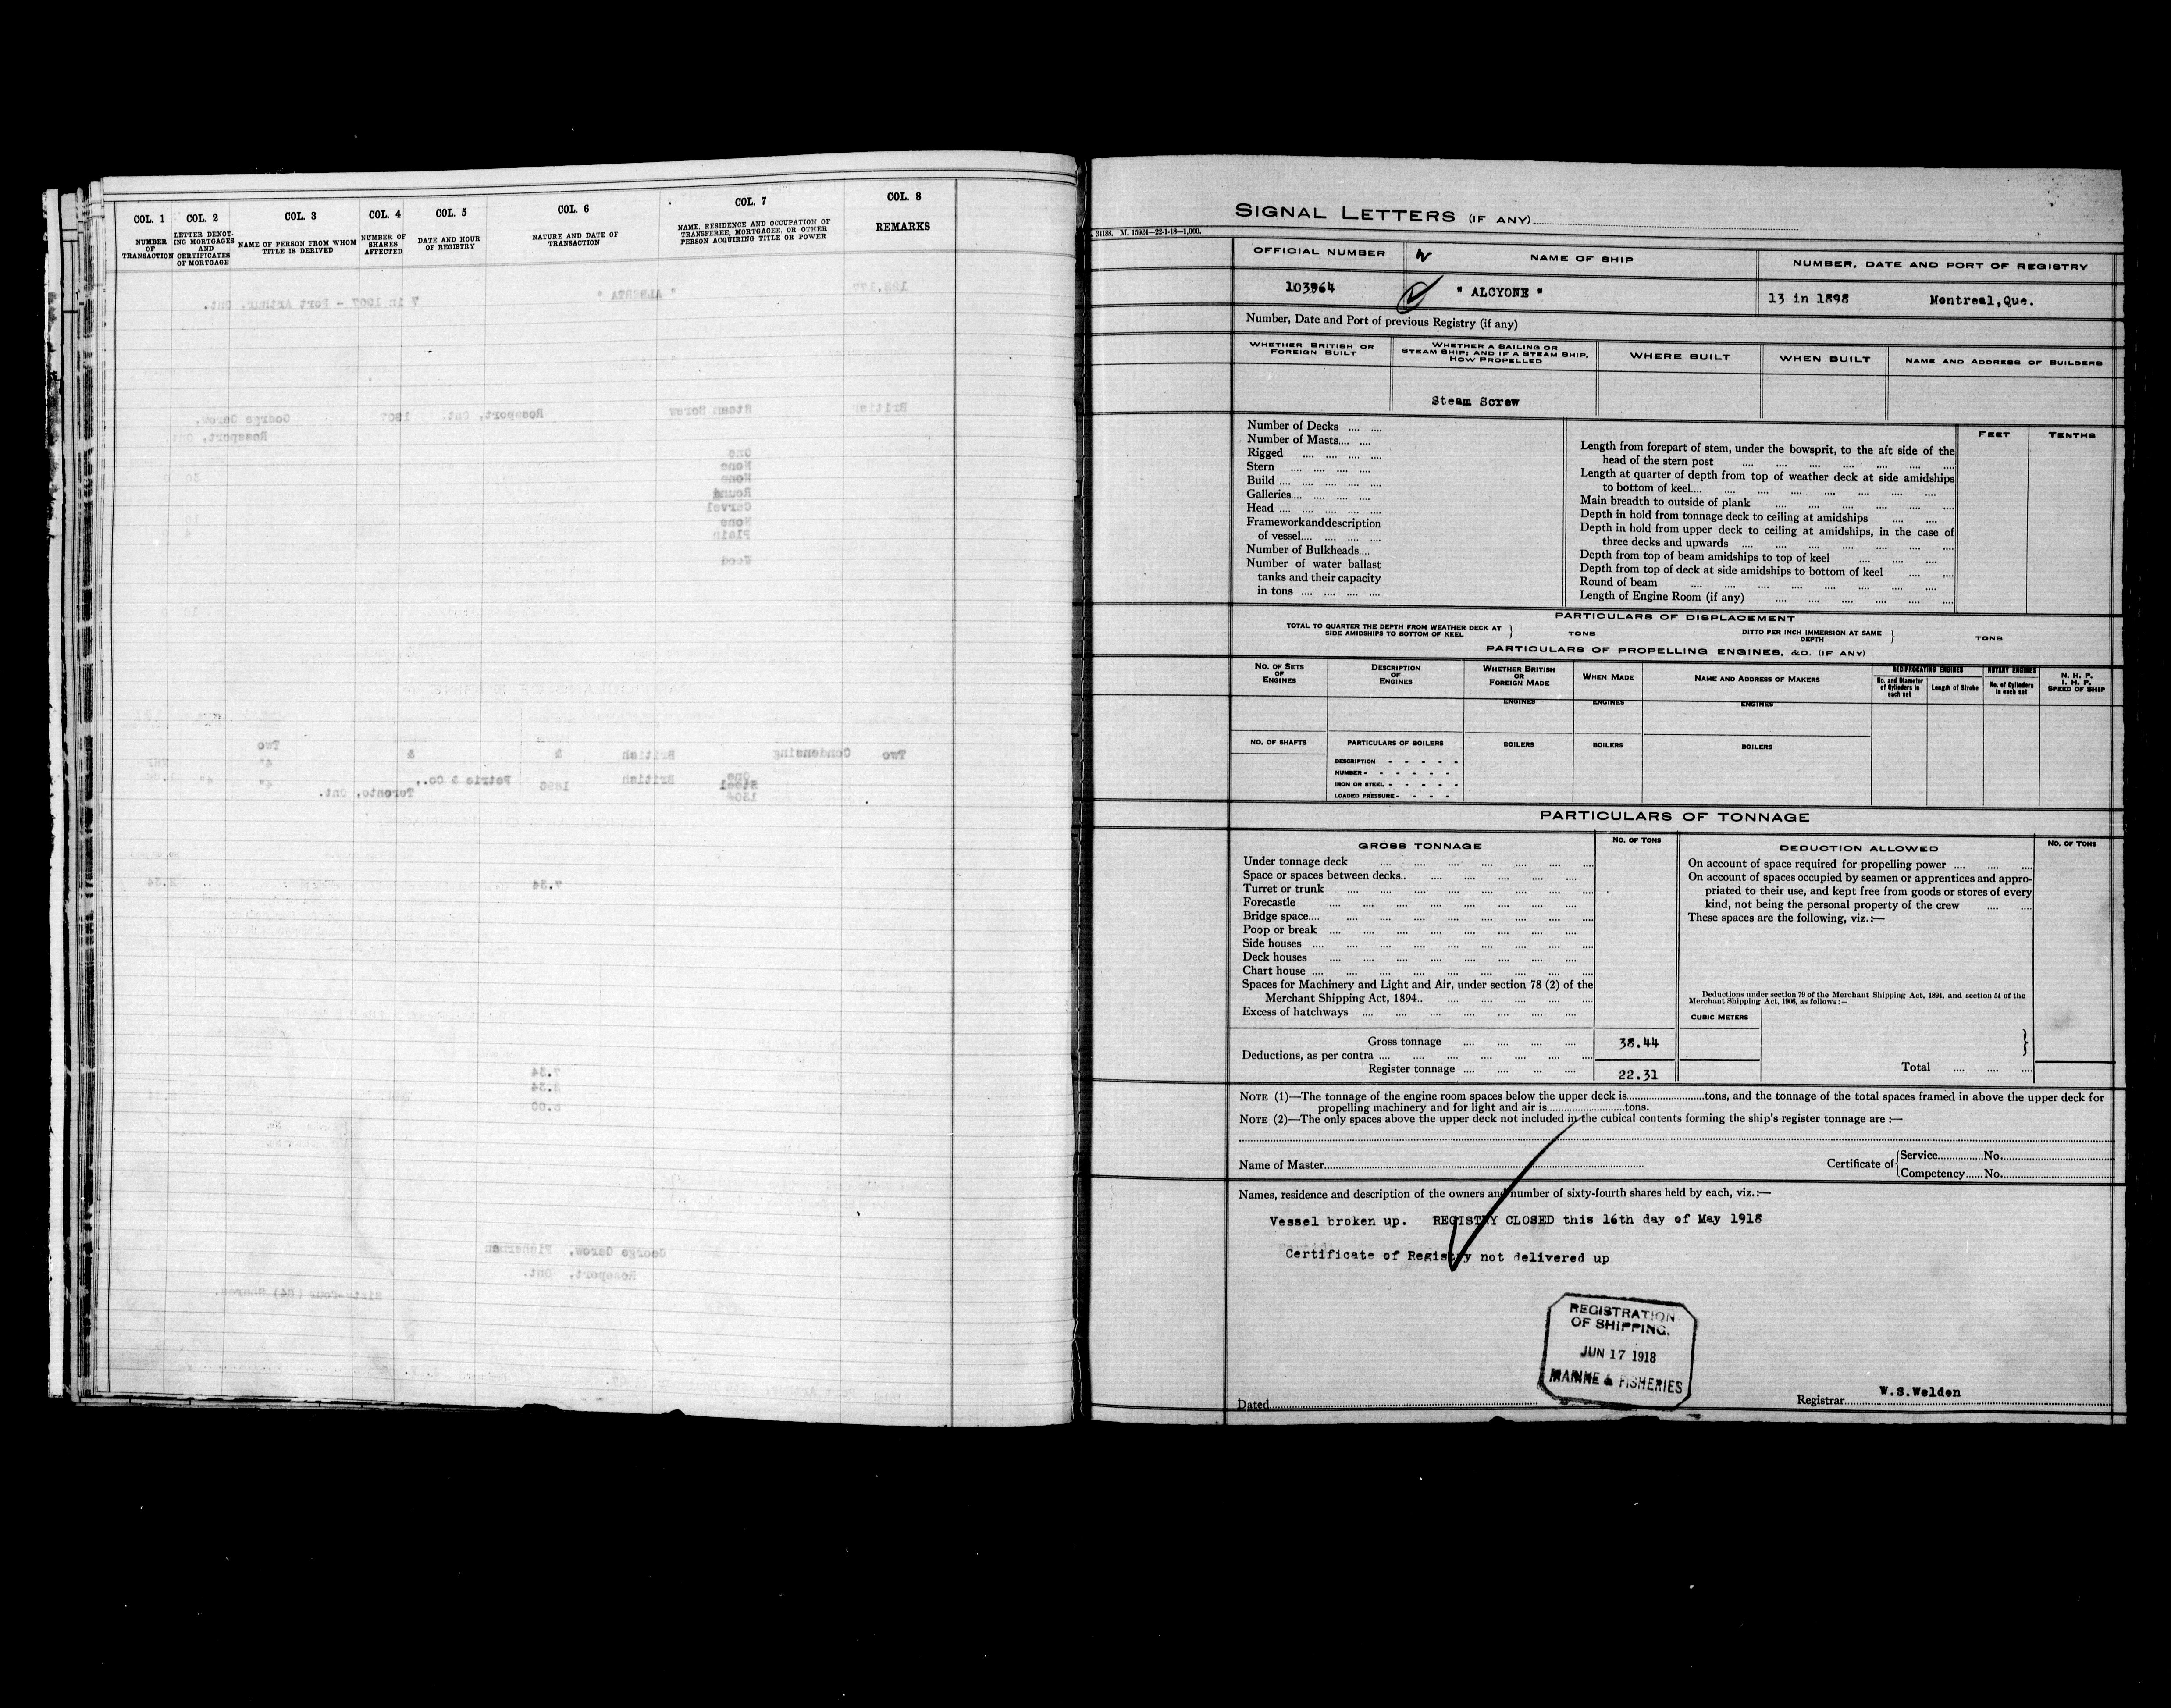 COL. 1 COL. 2 COL. 3 COL. 4 COL. 5 COL. 6 COL. 7 COL. 8
NUMBER OF TRANSACTION
LETTER DENOTING MORTGAGES AND CERTIFICATES OF MORTGAGE
NAME OF PERSON FROM WHOM TITLE IS DERIVED
NUMBER OF SHARES AFFECTED
DATE AND HOUR OF REGISTRY
NATURE AND DATE OF TRANSACTION
NAME, RESIDENCE AND OCCUPATION OF TRANSFEREE, MORTGAGEE, OR OTHER PERSON ACQUIRING TITLE OR POWER
REMARKS
SIGNAL LETTERS (IF ANY)
31188. M. 15924—22-1-18—1,000.
OFFICIAL NUMBER NAME OF SHIP NUMBER, DATE AND PORT OF REGISTRY
103964 " ALCYONE " 13 in 1898 Montreal,Que.
Number, Date and Port of previous Registry (if any)
WHETHER BRITISH OR FOREIGN BUILT
WHETHER A SAILING OR STEAM SHIP; AND IF A STEAM SHIP, HOW PROPELLED
WHERE BUILT
WHEN BUILT
NAME AND ADDRESS OF BUILDERS
Steam Screw
Number of Decks
Number of Masts
Rigged
Stern
Build
Galleries
Head
Framework and description
of vessel
Number of Bulkheads
Number of water ballast
tanks and their capacity
in tons
FEET TENTHS
Length from forepart of stem, under the bowsprit, to the aft side of the
head of the stern post
Length at quarter of depth from top of weather deck at side amidships
to bottom of keel
Main breadth to outside of plank
Depth in hold from tonnage deck to ceiling at amidships
Depth in hold from upper deck to ceiling at amidships, in the case of
three decks and upwards
Depth from top of beam amidships to top of keel
Depth from top of deck at side amidships to bottom of keel
Round of beam
Length of Engine Room (if any)
PARTICULARS OF DISPLACEMENT
TOTAL TO QUARTER THE DEPTH FROM WEATHER DECK AT SIDE AMIDSHIPS TO BOTTOM OF KEEL } TONS DITTO PER INCH IMMERSION AT SAME DEPTH } TONS
PARTICULARS OF PROPELLING ENGINES, &C. (IF ANY)
NO. OF SETS OF ENGINES
DESCRIPTION OF ENGINES
WHETHER BRITISH OR FOREIGN MADE
WHEN MADE
NAME AND ADDRESS OF MAKERS
RECIPROCATING ENGINES
No. and Diameter of Cylinders in each set
Length of Stroke
ROTARY ENGINES
No. of Cylinders in each set
N. H. P.
I. H. P.
SPEED OF SHIP
ENGINES ENGINES ENGINES
NO. OF SHAFTS PARTICULARS OF BOILERS BOILERS BOILERS BOILERS
DESCRIPTION
NUMBER
IRON OR STEEL
LOADED PRESSURE
PARTICULARS OF TONNAGE
GROSS TONNAGE NO. OF TONS
Under tonnage deck
Space or spaces between decks
Turret or trunk
Forecastle
Bridge space
Poop or break
Side houses
Deck houses
Chart house
Spaces for Machinery and Light and Air, under section 78 (2) of the
Merchant Shipping Act, 1894
Excess of hatchways
Gross tonnage 38.44
Deductions, as per contra
Register tonnage 22.31
DEDUCTION ALLOWED NO. OF TONS
On account of space required for propelling power
On account of spaces occupied by seamen or apprentices and appro-
priated to their use, and kept free from goods or stores of every
kind, not being the personal property of the crew
These spaces are the following, viz.:—
Deductions under section 79 of the Merchant Shipping Act, 1894, and section 54 of the
Merchant Shipping Act, 1906, as follows:—
CUBIC METERS
Total
NOTE (1)—The tonnage of the engine room spaces below the upper deck is tons, and the tonnage of the total spaces framed in above the upper deck for
propelling machinery and for light and air is tons.
NOTE (2)—The only spaces above the upper deck not included in the cubical contents forming the ship's register tonnage are :—
Name of Master Certificate of { Service No.
Competency No.
Names, residence and description of the owners and number of sixty-fourth shares held by each, viz.:—
Vessel broken up. REGISTRY CLOSED this 16th day of May 1918
Certificate of Registry not delivered up
REGISTRATION
OF SHIPPING.
JUN 17 1918
MARINE & FISHERIES
W.S.Welden
Dated Registrar